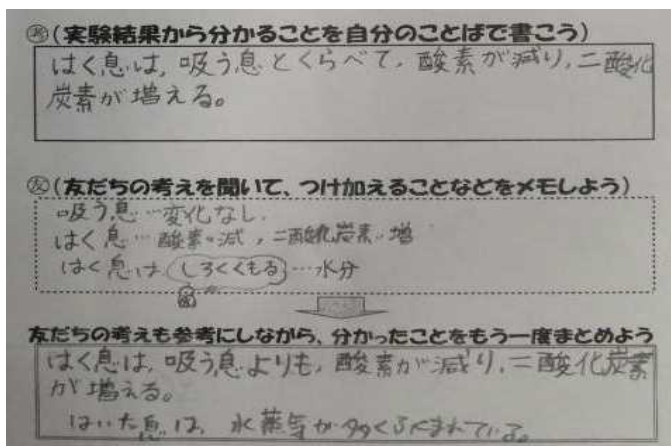 考(実験結果から分かることを自分のことばで書こう)
はく息は,吸う息とくらべて,酸素が減り,二酸化
炭素が増える。
友(友だちの考えを聞いて、つけ加えることなどをメモしよう)
吸う息…変化なし.
はく息…酸素…減,二酸化炭素…増
はく息はしろくくもる…水分
友だちの考えも参考にしながら、分かったことをもう一度まとめよう
はく息は,吸う息よりも,酸素が減り,二酸化炭素
が増える。
はいた息は,水蒸気が多くふくまれている。